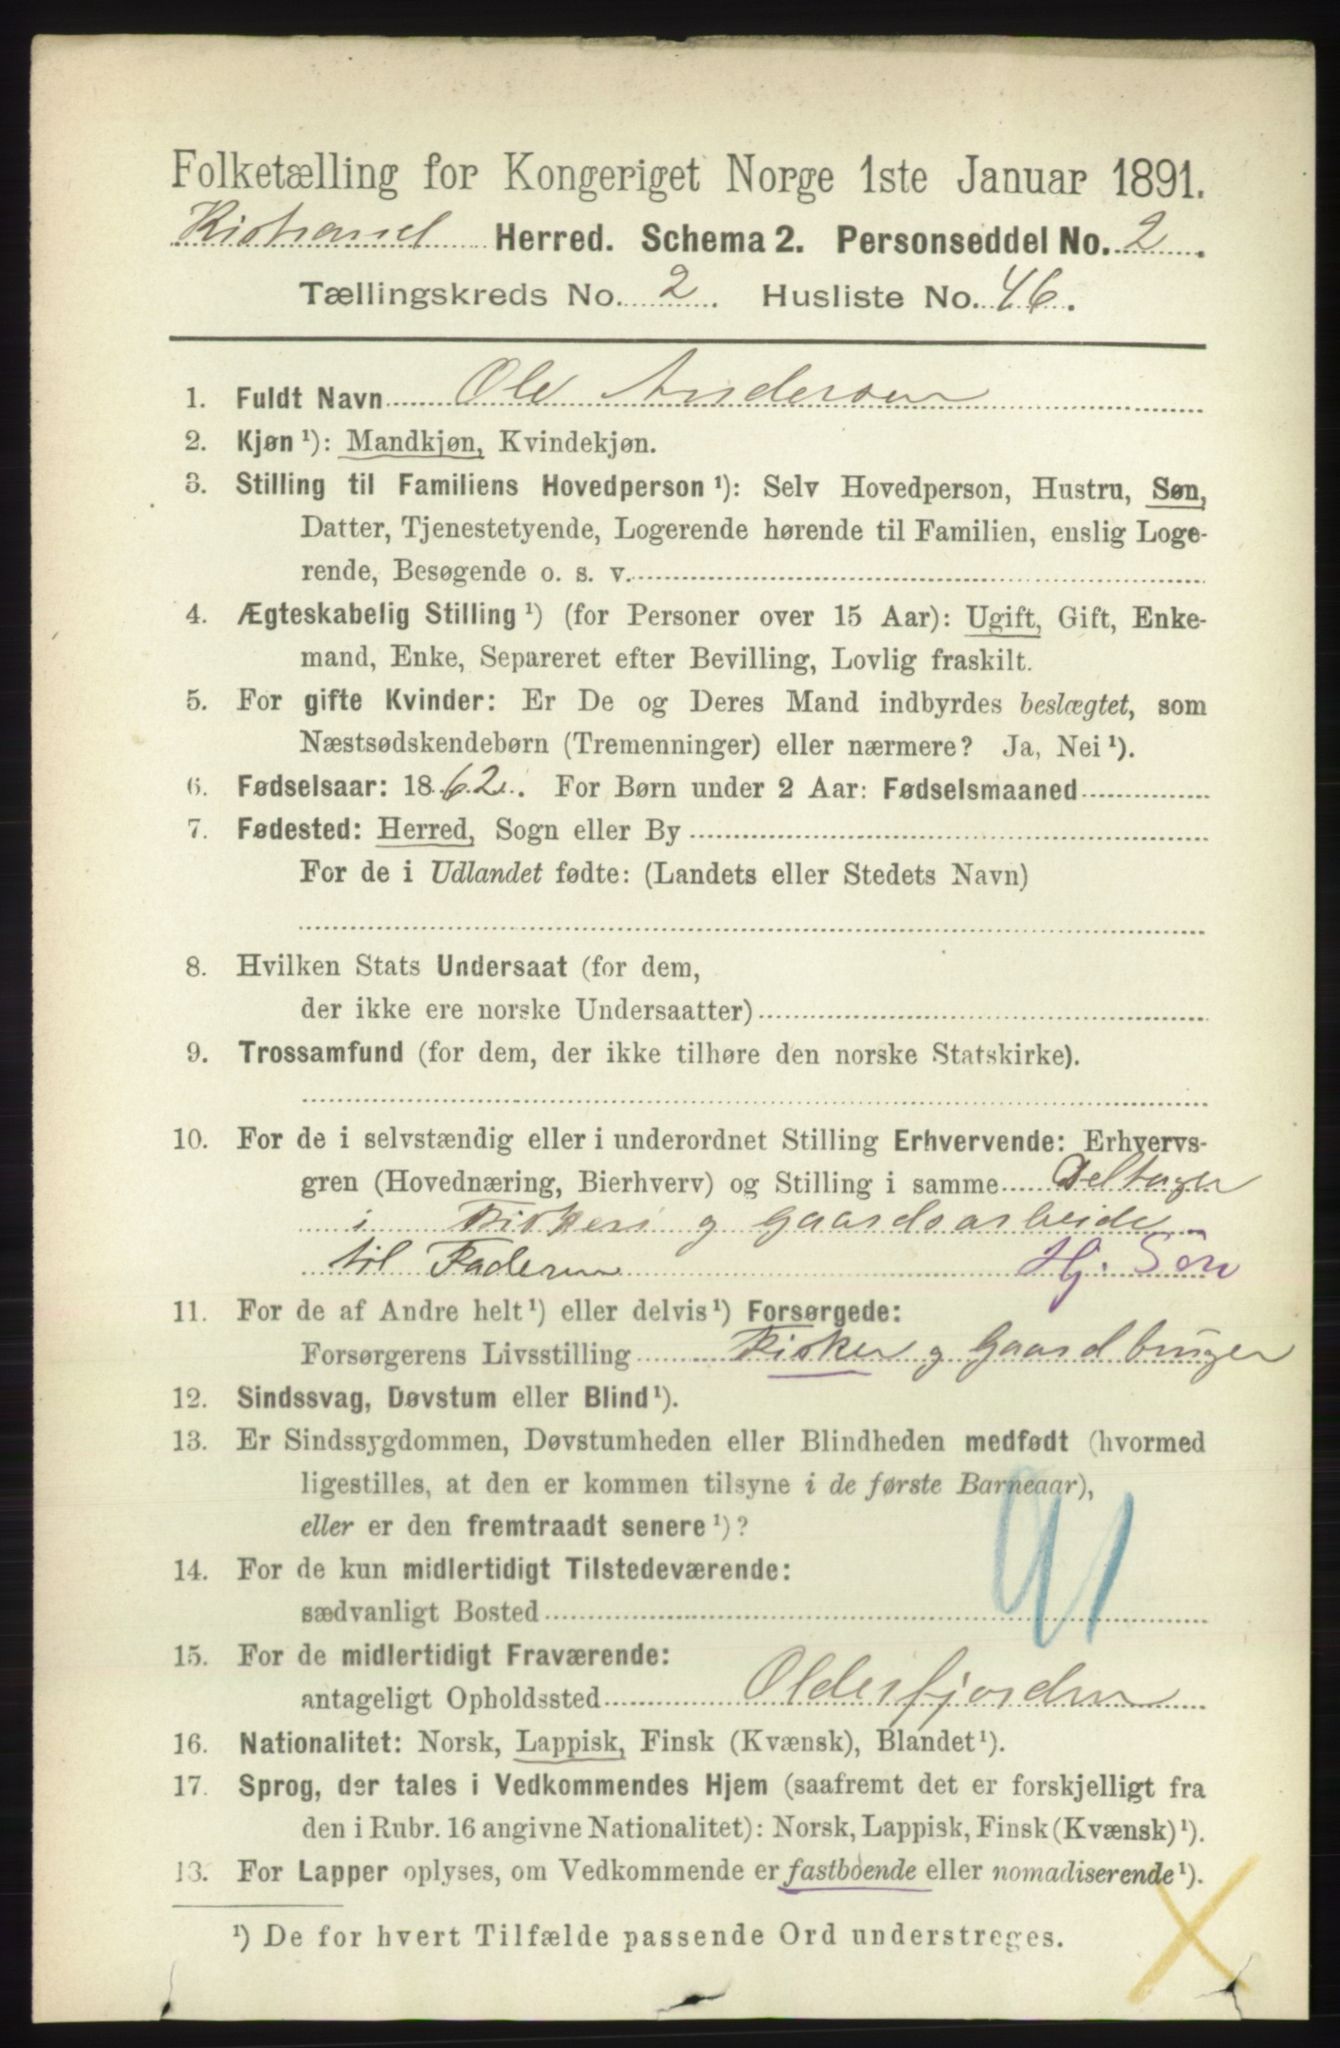 Folketælling for Kongeriget Norge 1ste Januar 1891.
Kistrand Herred. Schema 2. Personseddel No. 2.
Tællingskreds No. 2. Husliste No. 46.
1. Fuldt Navn Ole Andersen
2. Kjøn ¹): Mandkjøn, Kvindekjøn.
3. Stilling til Familiens Hovedperson ¹): Selv Hovedperson, Hustru, Søn,
Datter, Tjenestetyende, Logerende hørende til Familien, enslig Loge-
rende, Besøgende o. s. v.
4. Ægteskabelig Stilling ¹) (for Personer over 15 Aar): Ugift, Gift, Enke-
mand, Enke, Separeret efter Bevilling, Lovlig fraskilt.
5. For gifte Kvinder: Er De og Deres Mand indbyrdes beslægtet, som
Næstsødskendebørn (Tremenninger) eller nærmere? Ja, Nei ¹).
6. Fødselsaar: 1862. For Børn under 2 Aar: Fødselsmaaned
7. Fødested: Herred, Sogn eller By
For de i Udlandet fødte: (Landets eller Stedets Navn)
8. Hvilken Stats Undersaat (for dem,
der ikke ere norske Undersaatter)
9. Trossamfund (for dem, der ikke tilhøre den norske Statskirke).
10. For de i selvstændig eller i underordnet Stilling Erhvervende: Erhvervs-
gren (Hovednæring, Bierhverv) og Stilling i samme Deltager
i Fiskeri og Gaardsarbeide
til Faderen Hj. Søn
11. For de af Andre helt ¹) eller delvis ¹) Forsørgede:
Forsørgerens Livsstilling Fisker og Gaardbruger
12. Sindssvag, Døvstum eller Blind ¹).
13. Er Sindssygdommen, Døvstumheden eller Blindheden medfødt (hvormed
ligestilles, at den er kommen tilsyne i de første Barneaar),
eller er den fremtraadt senere ¹)?
91
14. For de kun midlertidigt Tilstedeværende:
sædvanligt Bosted
15. For de midlertidigt Fraværende:
antageligt Opholdssted Olderfjorden
16. Nationalitet: Norsk, Lappisk, Finsk (Kvænsk), Blandet ¹).
17. Sprog, der tales i Vedkommendes Hjem (saafremt det er forskjelligt fra
den i Rubr. 16 angivne Nationalitet): Norsk, Lappisk, Finsk (Kvænsk) ¹).
18. For Lapper oplyses, om Vedkommende er fastboende eller nomadiserende ¹).
¹) De for hvert Tilfælde passende Ord understreges.